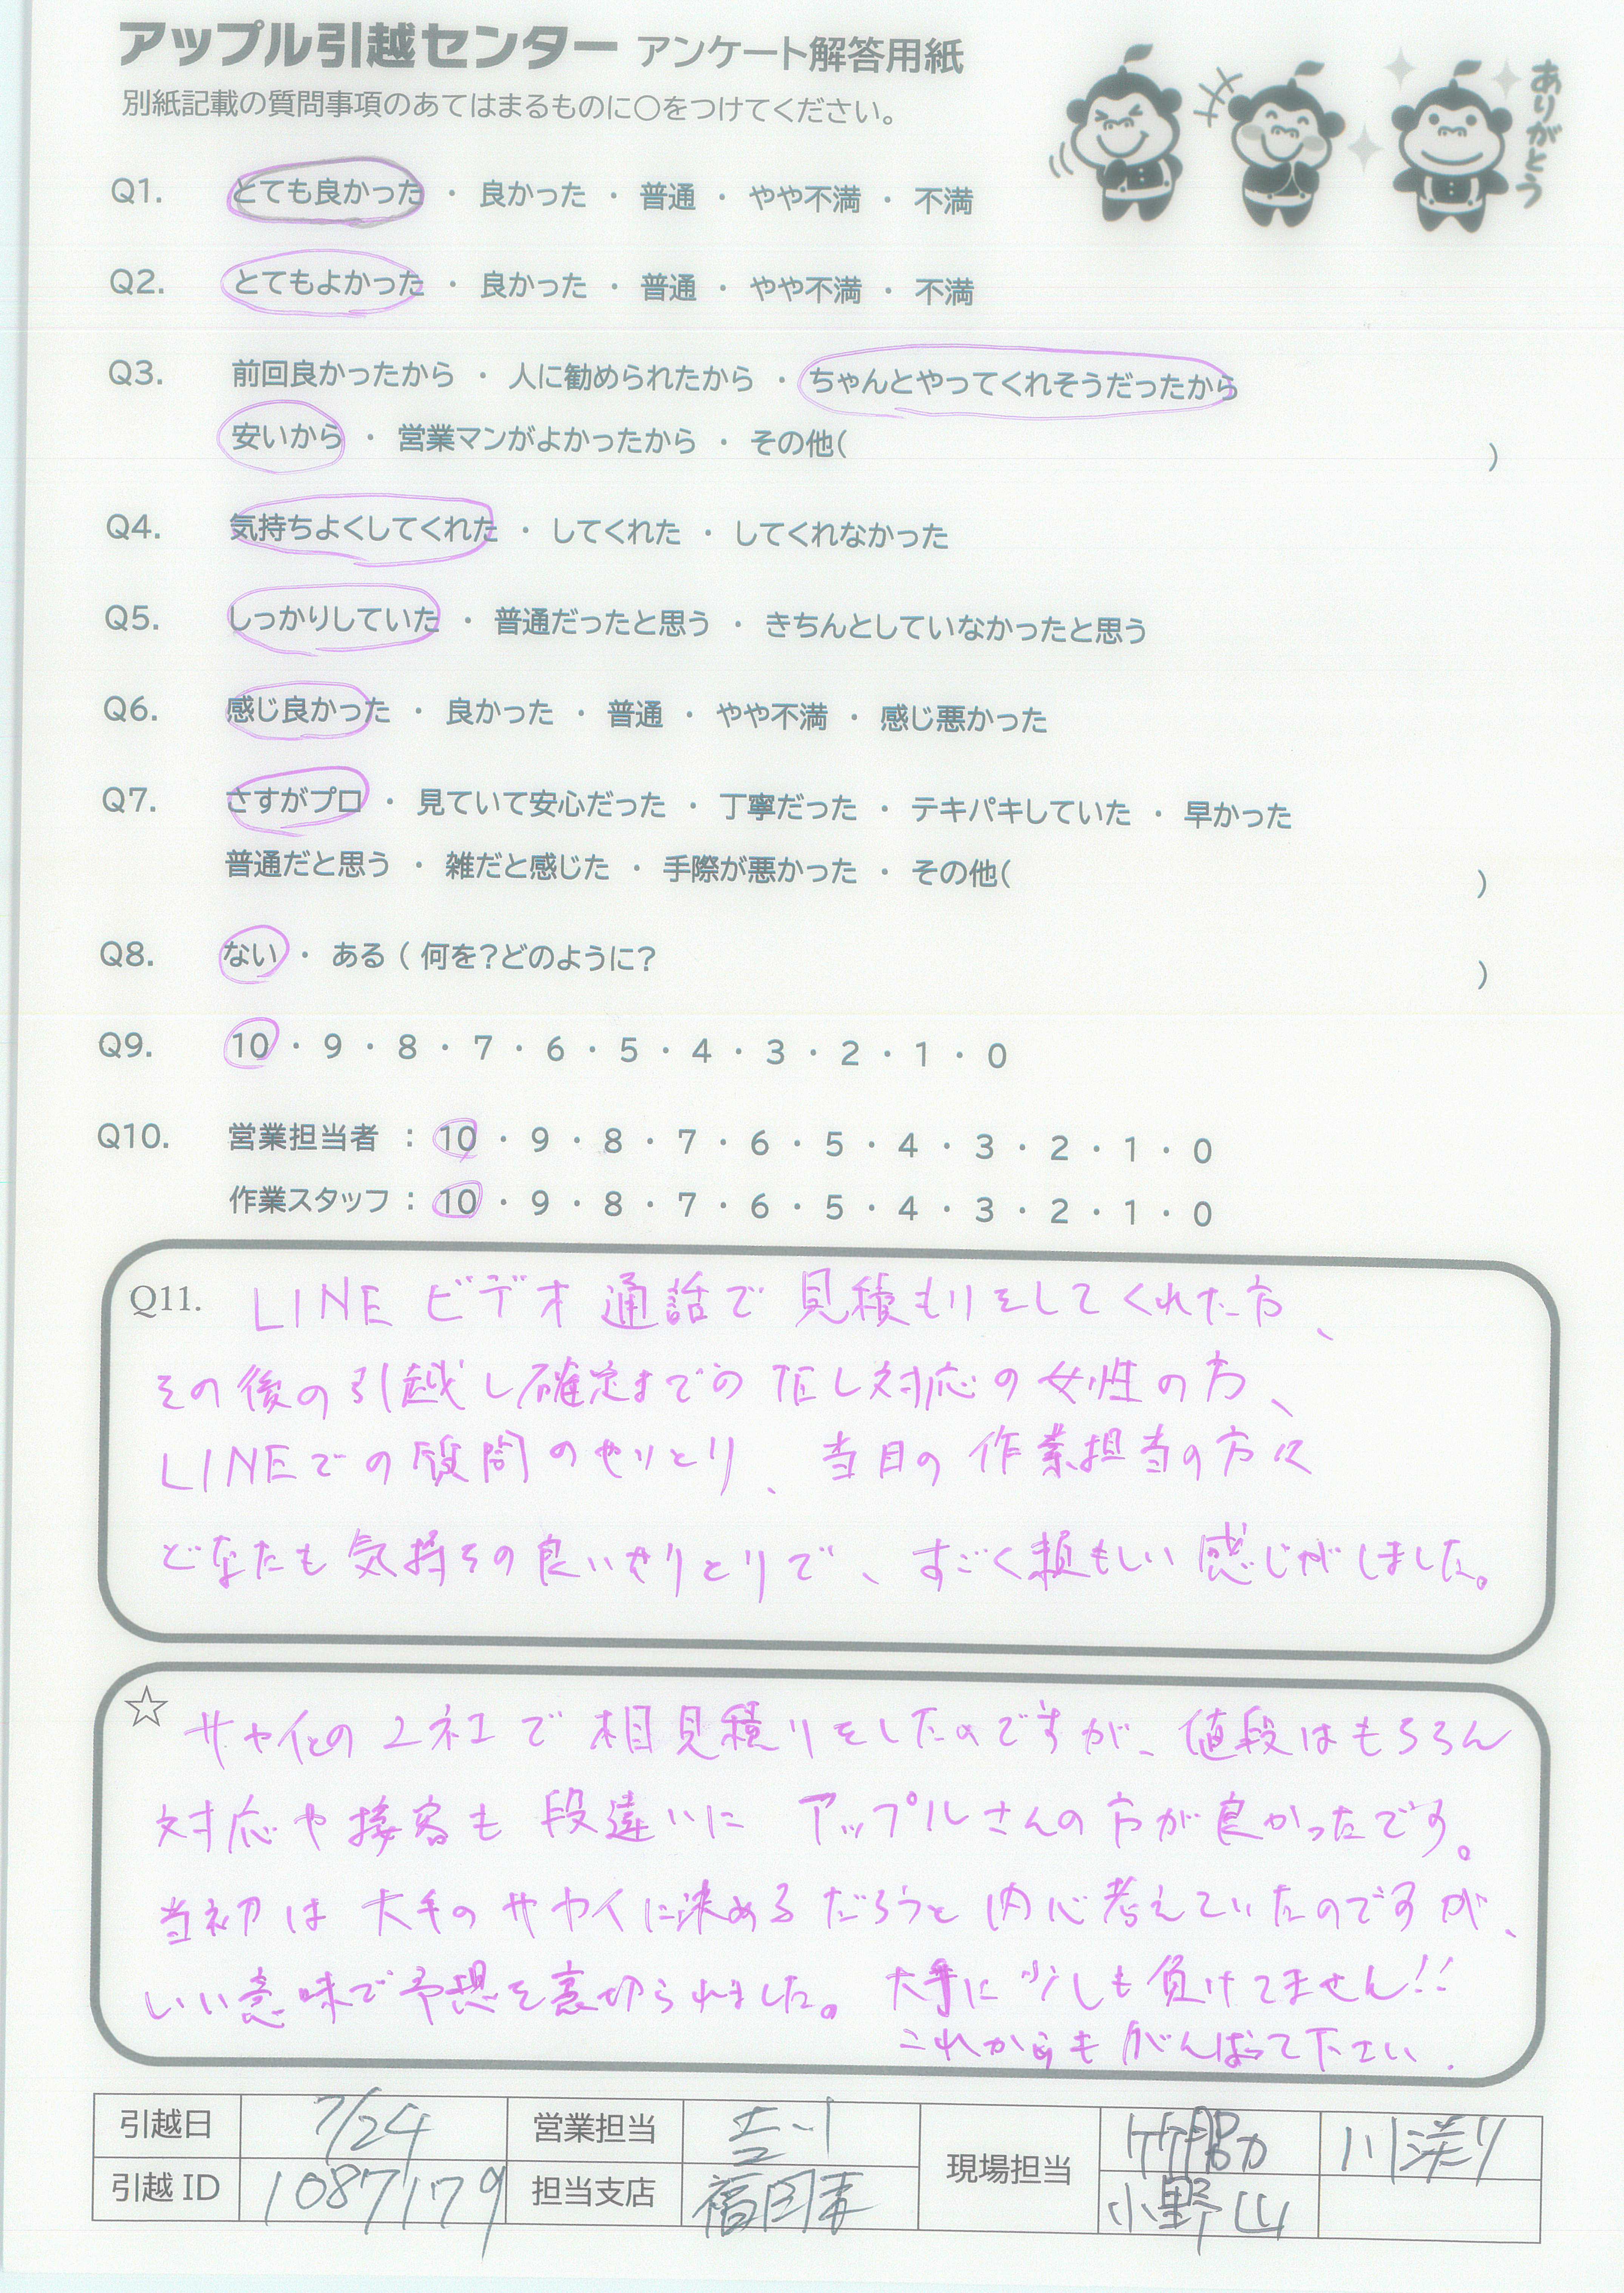 アップル引越センター アンケート解答用紙
別紙記載の質問事項のあてはまるものに○をつけてください。
ありがとう
Q1. とても良かった ・ 良かった ・ 普通 ・ やや不満 ・ 不満
Q2. とてもよかった ・ 良かった ・ 普通 ・ やや不満 ・ 不満
Q3. 前回良かったから ・ 人に勧められたから ・ ちゃんとやってくれそうだったから
安いから ・ 営業マンがよかったから ・ その他( )
Q4. 気持ちよくしてくれた ・ してくれた ・ してくれなかった
Q5. しっかりしていた ・ 普通だったと思う ・ きちんとしていなかったと思う
Q6. 感じ良かった ・ 良かった ・ 普通 ・ やや不満 ・ 感じ悪かった
Q7. さすがプロ ・ 見ていて安心だった ・ 丁寧だった ・ テキパキしていた ・ 早かった
普通だと思う ・ 雑だと感じた ・ 手際が悪かった ・ その他( )
Q8. ない ・ ある ( 何を?どのように? )
Q9. 10 ・ 9 ・ 8 ・ 7 ・ 6 ・ 5 ・ 4 ・ 3 ・ 2 ・ 1 ・ 0
Q10. 営業担当者 : 10 ・ 9 ・ 8 ・ 7 ・ 6 ・ 5 ・ 4 ・ 3 ・ 2 ・ 1 ・ 0
作業スタッフ : 10 ・ 9 ・ 8 ・ 7 ・ 6 ・ 5 ・ 4 ・ 3 ・ 2 ・ 1 ・ 0
Q11. LINE ビデオ通話で見積もりをしてくれた方、
その後の引越し確定までの 対応の女性の方、
LINEでの質問のやりとり、当日の作業担当の方々
どなたも気持ちの良いやりとりで、すごく頼もしい感じがしました。
☆ サカイとの2社で相見積りをしたのですが、値段はもちろん
対応や接客も段違いにアップルさんの方が良かったです。
当初は大手のサカイに決めるだろうと内心考えていたのですが、
いい意味で予想を裏切られました。大手に少しも負けてません!!
これからもがんばって下さい.
引越日 7/24 営業担当 現場担当 竹脇 小野山
引越ID 1087179 担当支店 福岡東